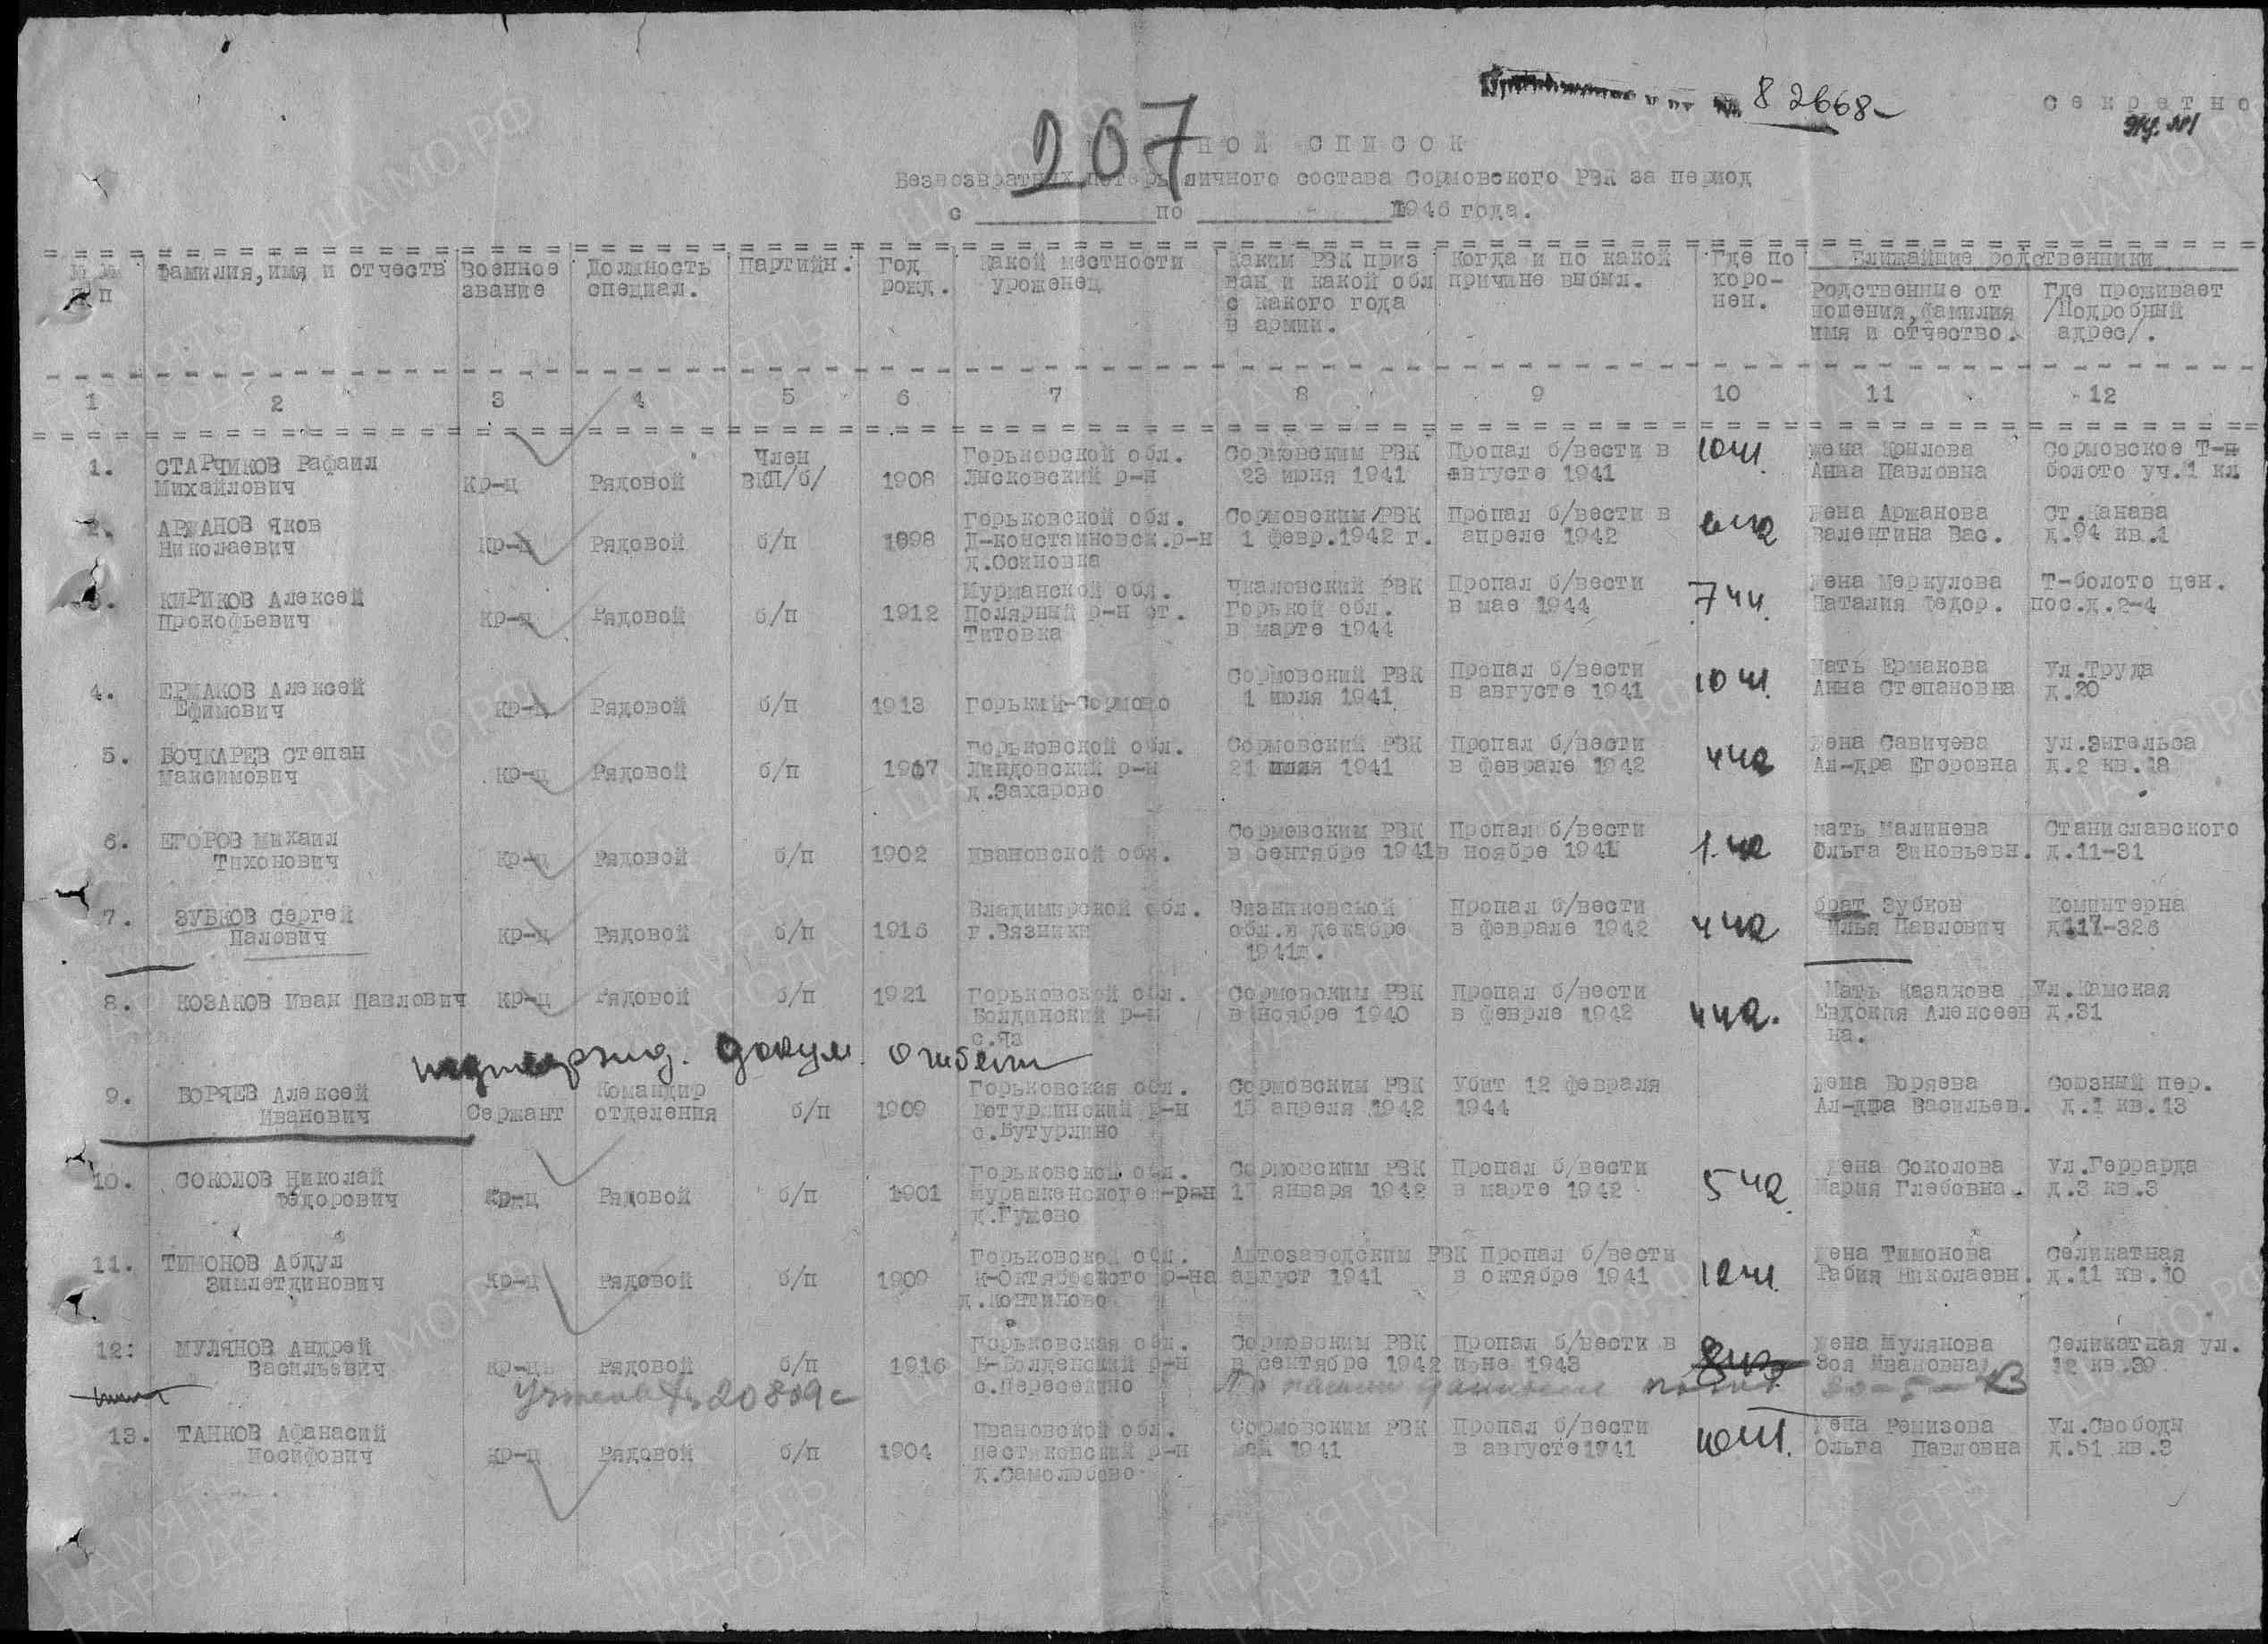 8 2668
секретно
экз. №1
207
ной список
Безвозвратных потерь личного состава Сормовского РВК за период
с по 1946 года.
№ №
п п
Фамилия, имя и отчеств
Военное
звание
Должность
специал.
Партийн.
Год
рожд.
Какой местности
уроженец
Каким РВК приз
ван и какой обл
с какого года
в армии.
Когда и по какой
причине выбыл.
Где по
хоро-
нен.
Ближайшие родственники
Родственные от
ношения, фамилия
имя и отчество.
Где проживает
/Подробный
адрес/.
1 2 3 4 5 6 7 8 9 10 11 12
1. СТАРЧИКОВ Рафаил
Михайлович
Кр-ц
Рядовой
Член
ВКП/б/
1908
Горьковской обл.
Лысковский р-н
Сормовским РВК
23 июня 1941
Пропал б/вести в
августе 1941
жена Крылова
Анна Павловна
Сормовское Т-н
болото уч.1 кл
2. АРЖАНОВ Яков
Николаевич
Кр-ц
Рядовой
б/п
1898
Горьковской обл.
Д-констаиновск.р-н
д.Осиновка
Сормовским РВК
1 февр.1942 г.
Пропал б/вести в
апреле 1942
жена Аржанова
Валентина Вас.
Ст.Канава
д.94 кв.1
3. КИРИКОВ Алексей
Прокофьевич
кр-ц
Рядовой
б/п
1912
Мурманской обл.
Полярный р-н ст.
Титовка
Чкаловский РВК
Горькой обл.
в марте 1944
Пропал б/вести
в мае 1944
жена Меркулова
Наталия Федор.
Т-болото цен.
пос.д.2-4
4. ЕРМАКОВ Алексей
Ефимович
кр-ц
Рядовой
б/п
1913
Горький-Сормово
Сормовский РВК
1 июля 1941
Пропал б/вести
в августе 1941
Мать Ермакова
Анна Степановна
Ул.Труда
д.20
5. БОЧКАРЕВ Степан
Максимович
кр-ц
Рядовой
б/п
1907
Горьковской обл.
Линдовский р-н
д.Захарово
Сормовский РВК
21 июля 1941
Пропал б/вести
в феврале 1942
жена Савичева
Ал-дра Егоровна
ул.Энгельса
д.2 кв.18
6. ЕГОРОВ Михаил
Тихонович
Кр-ц
Рядовой
б/п
1902
Ивановской обл.
Сормовским РВК
в сентябре 1941
Пропал б/вести
в ноябре 1941
мать Малинева
Ольга Зиновьевн.
Станиславского
д.11-31
7. ЗУБКОВ Сергей
Палович
кр-ц
Рядовой
б/п
1916
Владимирской обл.
г.Вязники
Вязниковской
обл.в декабре
1941г.
Пропал б/вести
в феврале 1942
брат Зубков
Илья Павлович
Коминтерна
д.117-326
8. КОЗАКОВ Иван Павлович
кр-ц
Рядовой
б/п
1921
Горьковской обл.
Болдинский р-н
с.Яз
Сормовским РВК
в ноябре 1940
Пропал б/вести
в феврле 1942
Мать Казакова
Евдокия Алексеев
на.
Ул.Камская
д.31
подтвержд. докум. ответ
9. БОРЯЕВ Алексей
Иванович
Сержант
Командир
отделения
б/п
1909
Горьковская обл.
Бутурлинский р-н
с.Бутурлино
Сормовским РВК
15 апреля 1942
Убит 12 февраля
1944
жена Боряева
Ал-дра Васильев.
Союзный пер.
д.1 кв.13
10. СОКОЛОВ Николай
Федорович
Кр-ц
Рядовой
б/п
1901
Горьковской обл.
Мурашкенского-рян
д.Гужево
Сормовским РВК
17 января 1942
Пропал б/вести
в марте 1942
жена Соколова
Мария Глебовна.
ул.Геррарда
д.3 кв.3
11. ТИМОНОВ Абдул
Зимлетдинович
Кр-ц
Рядовой
б/п
1909
Горьковской обл.
К-Октябрского р-на
Автозаводским РВК
август 1941
Пропал б/вести
в октябре 1941
жена Тимонова
Рабия Николаевн.
Селикатная
д.11 кв.10
12: МУЛЯНОВ Андрей
Васильевич
кр-ц
Рядовой
б/п
1916
Горьковская обл.
Б-Болденский р-н
с.Переселино
Сормовским РВК
в сентябре 1942
Пропал б/вести в
июне 1943
жена Мулянова
Зоя Ивановна
Селикатная ул.
12 кв.39
Учтен 20809с
По нашим данным погиб 30-5-43
13. ТАНКОВ Афанасий
Иосифович
кр-ц
Рядовой
б/п
1904
Ивановской обл.
Пестяковский р-н
д.Самолобово
Сормовским РВК
май 1941
Пропал б/вести
в августе 1941
жена Ремизова
Ольга Павловна
Ул.Свободы
д.51 кв.3